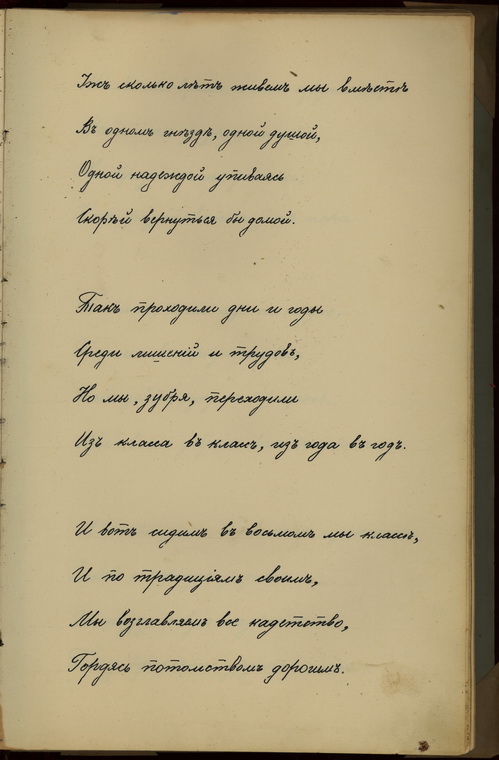 Ужъ сколько лѣтъ живемъ мы вмѣстѣ
Въ одномъ гнѣздѣ, одной душой,
Одной надеждой упиваясь
Скорѣй вернуться бы домой.
Такъ проходили дни и годы
Среди лишеній и трудовъ,
Но мы, зубря, переходили
Изъ класса въ классъ, изъ года въ годъ.
И вотъ сидимъ въ восьмомъ мы классѣ,
И по традиціямъ своимъ,
Мы возглавляемъ все кадетство,
Гордясь потомствомъ дорогимъ.